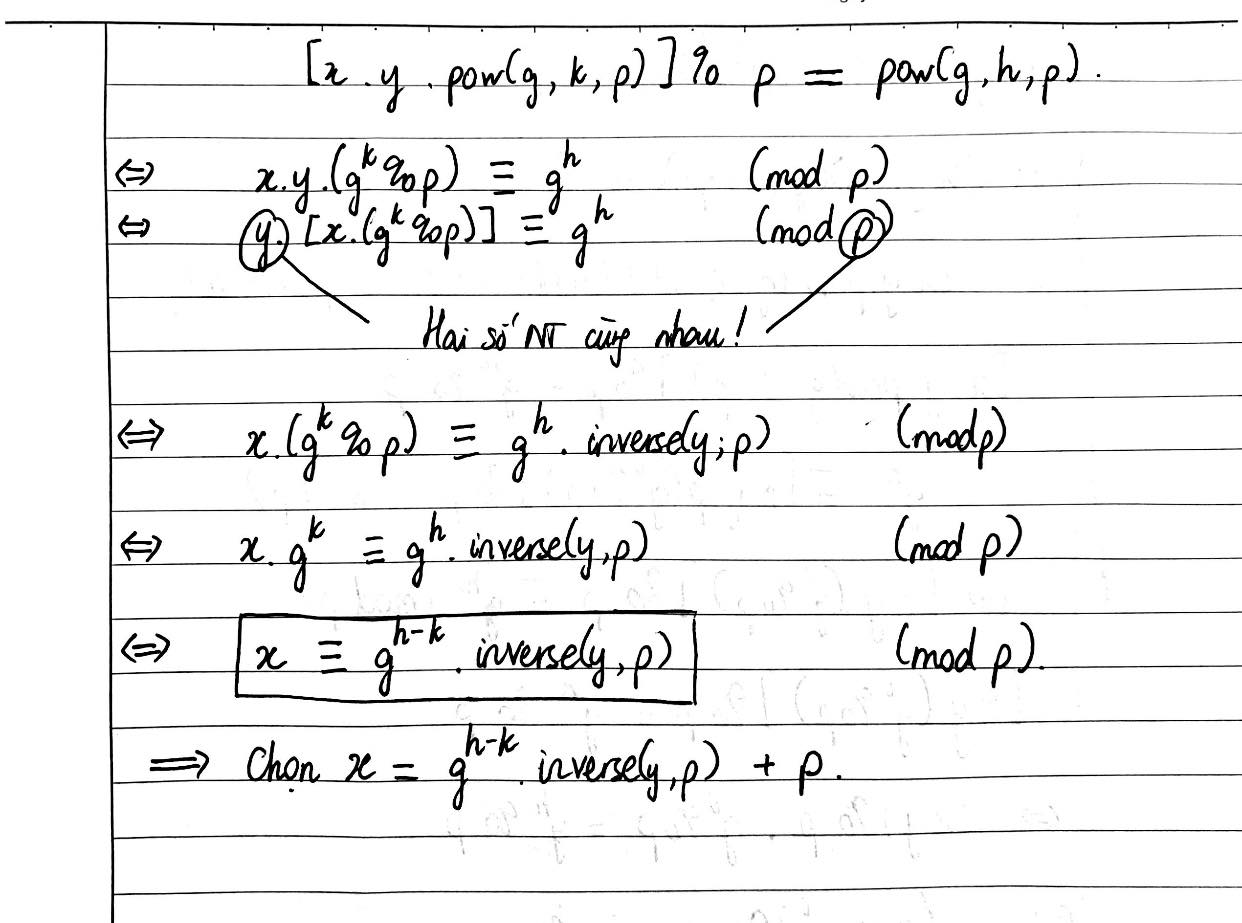 [x . y . pow(g, k, p)] % p = pow(g, h, p).
⇔ x.y.(g^k % p) ≡ g^h (mod p)
⇔ y. [x.(g^k % p)] ≡ g^h (mod p)
Hai số NT cùng nhau!
⇔ x.(g^k % p) ≡ g^h . inverse(y; p) (mod p)
⇔ x. g^k ≡ g^h . inverse(y, p) (mod p)
⇔ x ≡ g^{h-k} . inverse(y, p) (mod p).
⇒ Chọn x = g^{h-k} . inverse(y, p) + p.